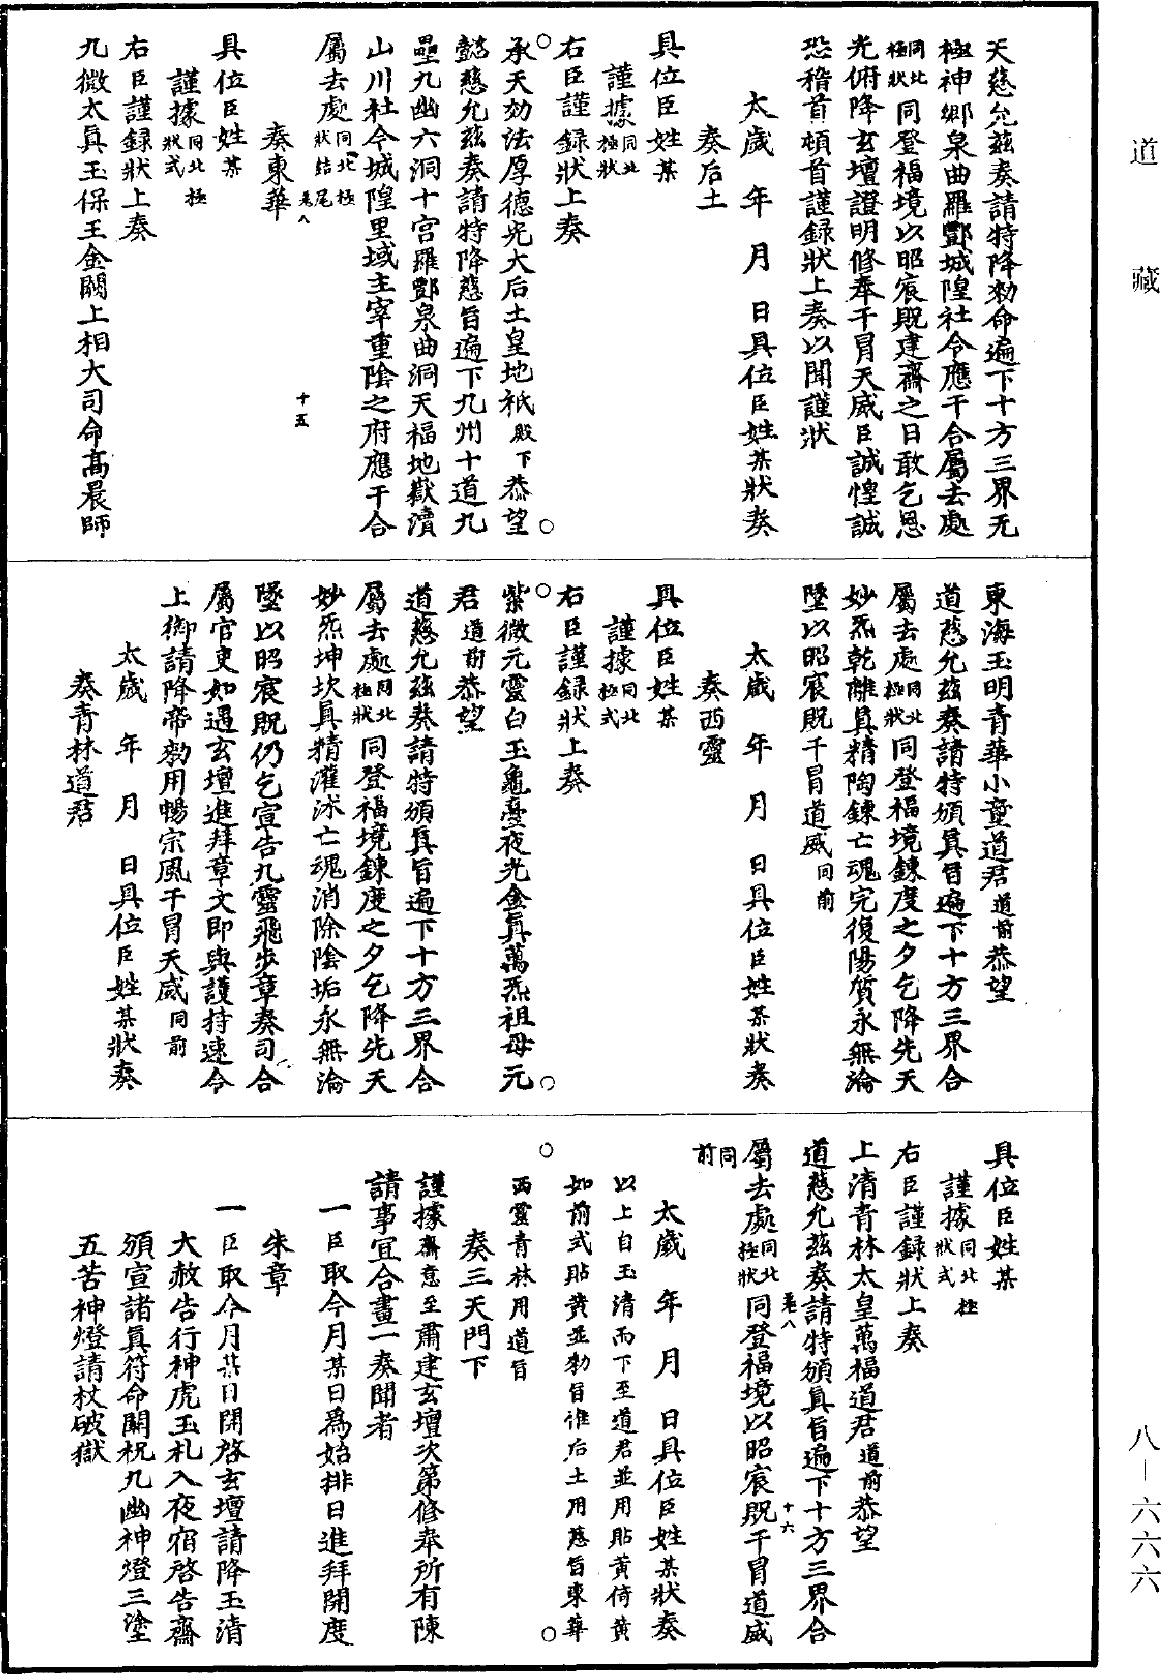 道藏
天慈允茲奏請特降勑命遍下十方三界无
極神鄉泉曲羅酆城隍社令應干合屬去處
同北極狀同登福境以昭宸貺建齋之日敢乞恩
光俯降玄壇證明修奉干冒天威臣誠惶誠
恐稽首頓首謹録狀上奏以聞謹狀
太歲年月日具位臣姓某狀奏
奏后土
具位臣姓某
謹據同北極狀
右臣謹録狀上奏
承天効法厚德光大后土皇地祇殿下恭望
懿慈允茲奏請特降慈旨遍下九州十道九
壘九幽六洞十宫羅酆泉曲洞天福地嶽瀆
山川社令城隍里域主宰重陰之府應干合
屬去處同北極狀結尾
卷八
十五
奏東華
具位臣姓某
謹據同北極狀式
右臣謹録狀上奏
九微太真玉保王金闕上相大司命高晨師
東海玉明青華小童道君道前恭望
道慈允茲奏請特頒真旨遍下十方三界合
屬去處同北極狀同登福境鍊度之夕乞降先天
妙炁乾離真精陶鍊亡魂完復陽質永無淪
墜以昭宸貺干冒道威同前
太歲年月日具位臣姓某狀奏
奏西靈
具位臣姓某
謹據同北極式
右臣謹録狀上奏
紫微元靈白玉龜臺夜光金真萬炁祖母元
君道前恭望
道慈允茲奏請特頒真旨遍下十方三界合
屬去處同北極狀同登福境鍊度之夕乞降先天
妙炁坤坎真精灌沭亡魂消除陰垢永無淪
墜以昭宸貺仍乞宣告九靈飛步章奏司合
屬官吏如遇玄壇進拜章文即與護持速令
上御請降帝勑用暢宗風干冒天威同前
太歲年月日具位臣姓某狀奏
奏青林道君
具位臣姓某
謹據同北極狀式
右臣謹録狀上奏
上清青林太皇萬福道君道前恭望
道慈允茲奏請特頒真旨遍下十方三界合
卷八
十六
屬去處同北極狀同登福境以昭宸貺干冒道威
同前
太歲年月日具位臣姓某狀奏
以上自玉清而下至道君並用貼黄倚黄
如前式貼黄並勑旨惟后土用慈旨東華
西靈青林用道旨
奏三天門下
謹據齋意至肅建玄壇次第修奉所有陳
請事宜合畫一奏聞者
一臣取今月某日爲始排日進拜開度
朱章
一臣取今月某日開啓玄壇請降玉清
大赦告行神虎玉札入夜宿啓告齋
頒宣諸真符命關祝九幽神燈三塗
五苦神燈請杖破獄
八—六六六